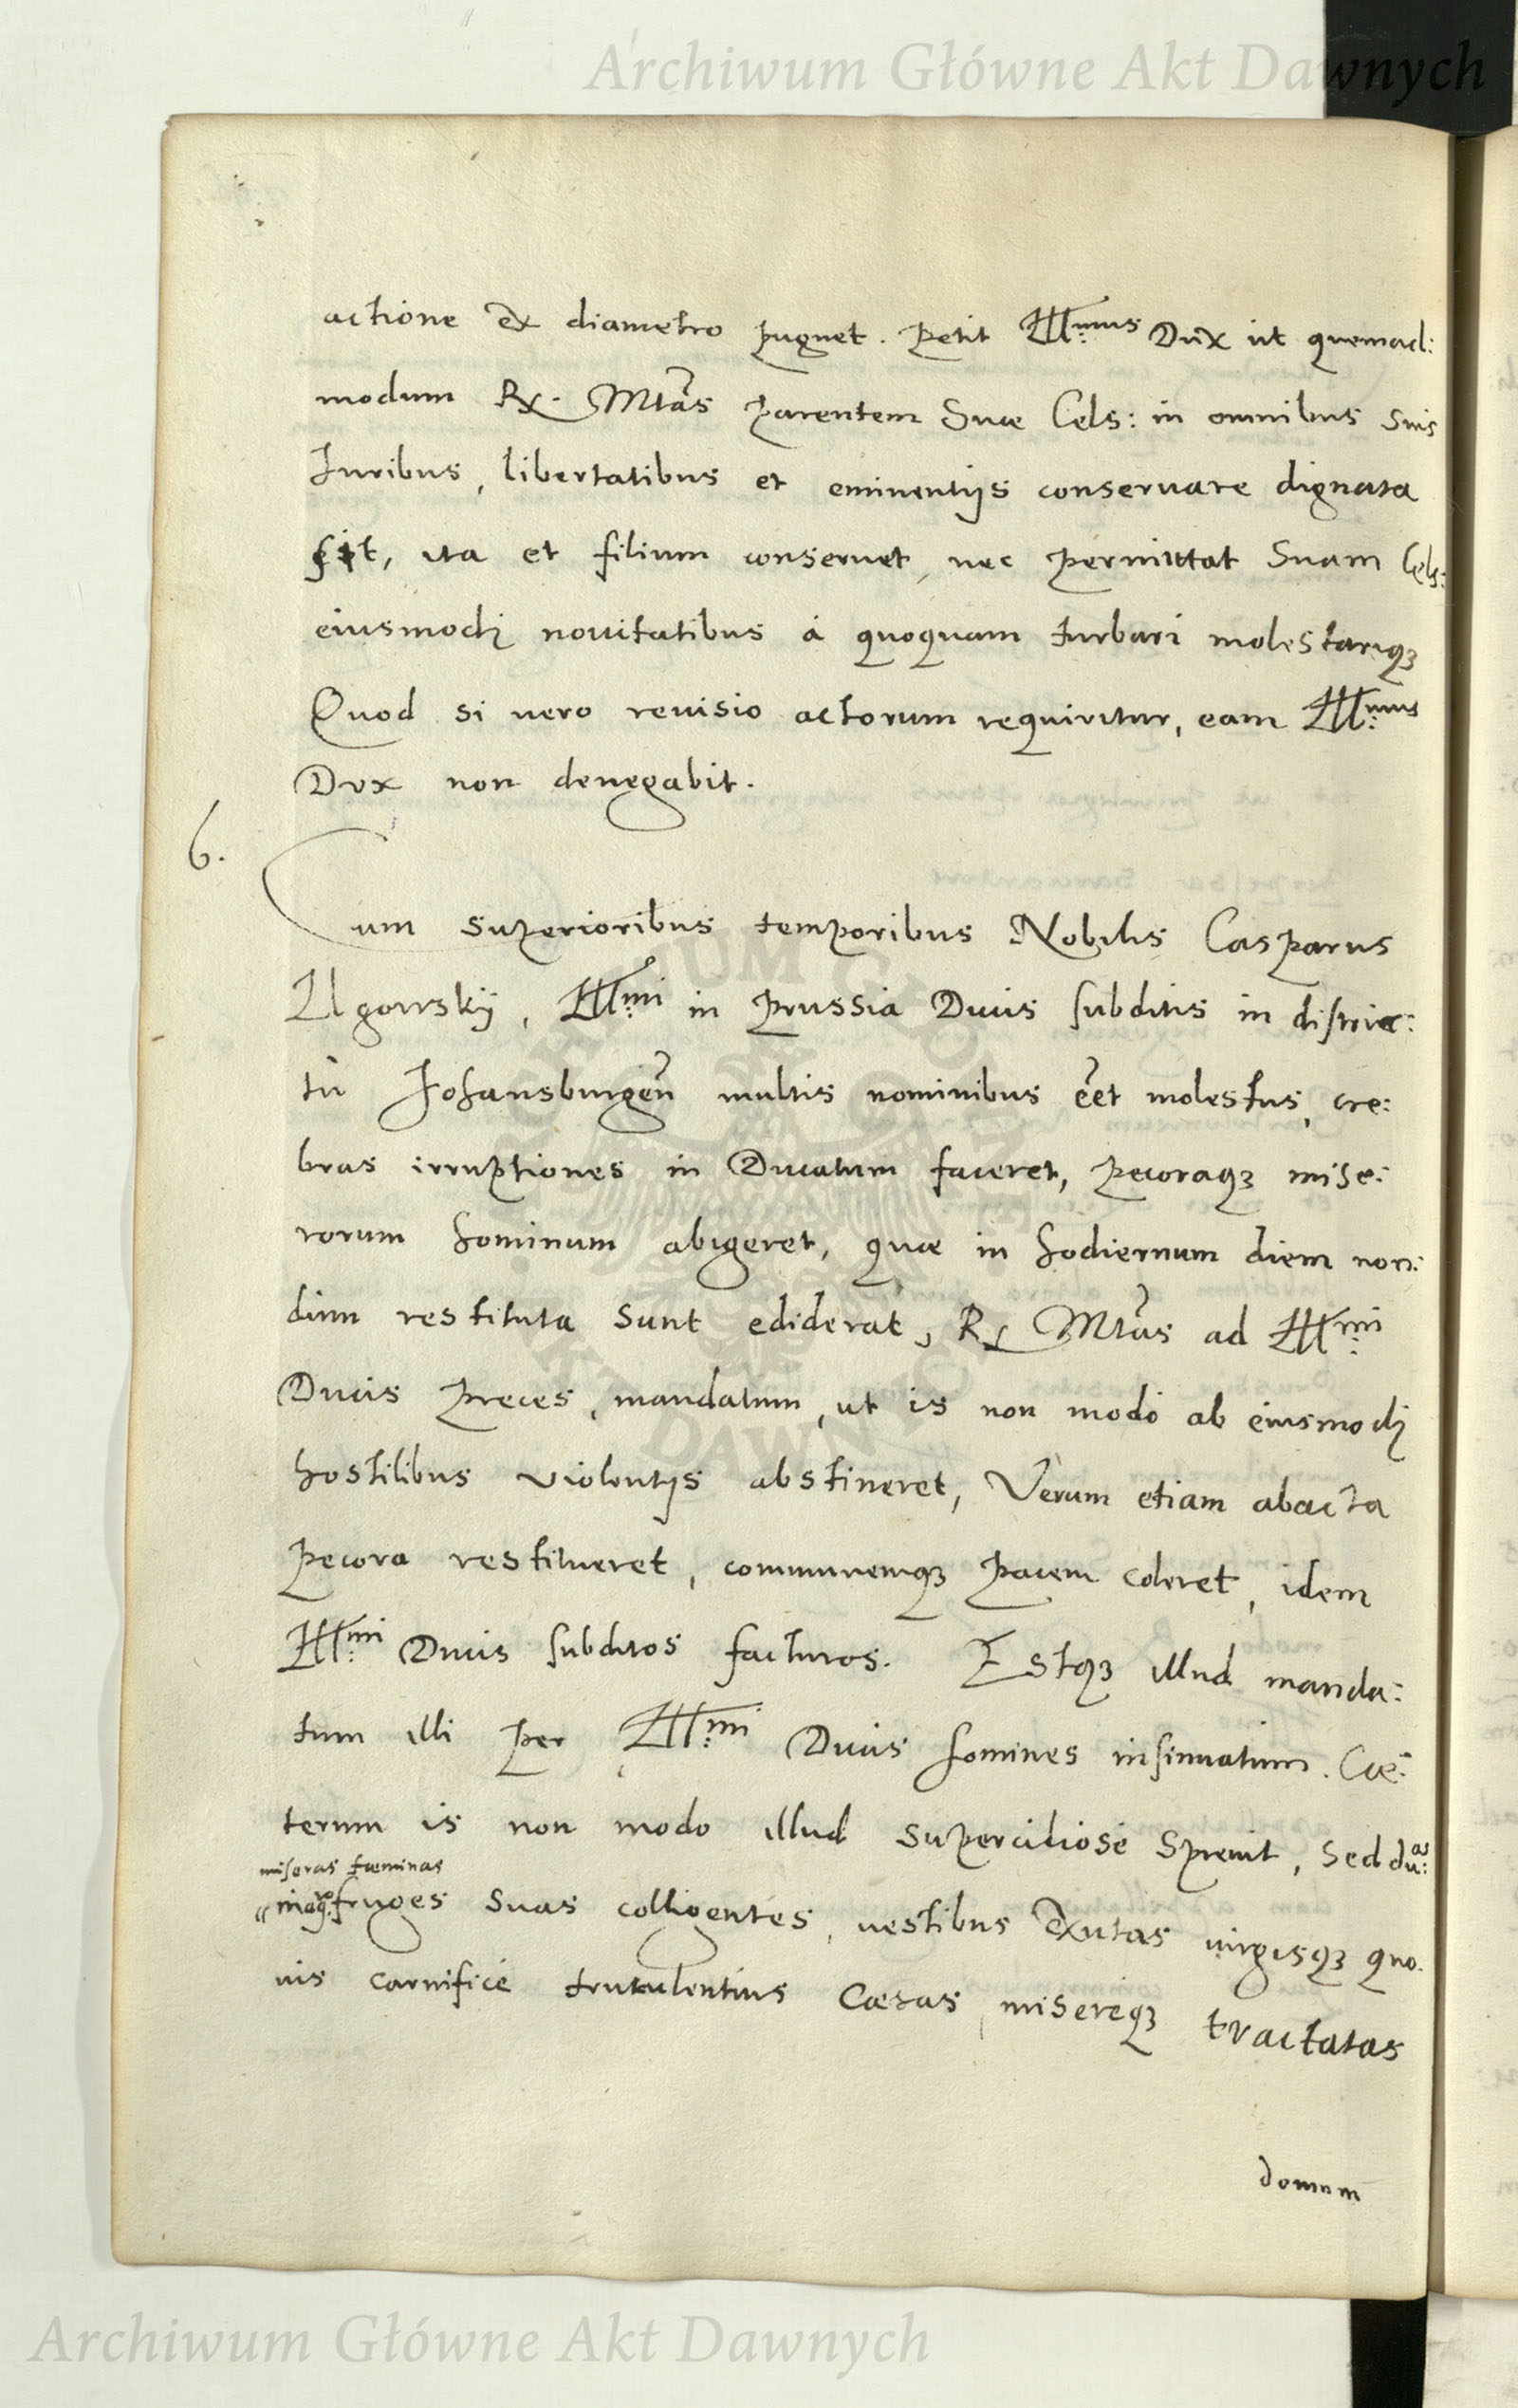 Archiwum Główne Akt Dawnych
actione ex diametro pugnet. Petit Ill:mus Dux ut quemad:
modum R. Mtas parentem Suae Cels: in omnibus suis
Iuribus, libertatibus et eminentijs conseruare dignata
sit, ita et filium conseruet, nec permittat Suam Cels:
eiusmodj nouitatibus á quoquam turbari molestariqꝫ
Quod si vero reuisio actorum requiritur, eam Ill:mus
Dux non denegabit.
6.
Cum superioribus temporibus Nobilis Casparus
Ilgowskij, Ill:mi in Prussia Ducis subditis in distric:
tu Johansburgeñ multis nominibus eēt molestus, cre:
bras irruptiones in Ducatum faceret, pecoraqꝫ mise:
rorum hominum abigeret, quae in hodiernum diem non:
dum restituta sunt ediderat, R. Mtas ad Ill:mi
Ducis preces, mandatum, ut is non modo ab eiusmodj
hostilibus violentijs abstineret, Verum etiam abacta
pecora restitueret, communemqꝫ pacem coleret, idem
Ill:mi Ducis subditos facturos. Estqꝫ illud manda:
tum illi per Ill:mi Ducis homines insinuatum. Cae:
terum is non modo illud superciliosé spreuit, sed du:as
miseras faeminas
in agro fruges suas colligentes, vestibus exutas virgisqꝫ quo
uis carnificé trutulentius caesas, misereqꝫ tractatas
domum
Archiwum Główne Akt Dawnych